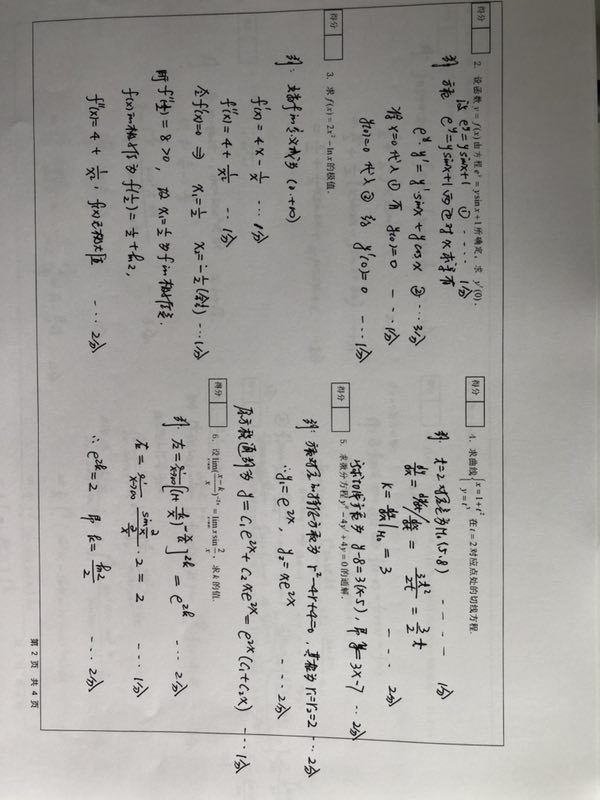 得分
2. 设函数 y = f(x) 由方程 e^y = y sin x + 1 所确定，求 y'(0).
设 e^y = y sinx + 1 ① ---- 1分
解: 方程 e^y = y sinx + 1 两边对 x 求导有
e^y · y' = y' sinx + y cosx ② --- 3分
将 x=0 代入 ① 有 y(0)=0 --- 1分
y(0)=0 代入 ② 知 y'(0)=0 --- 1分
得分
3. 求 f(x) = 2x² − ln x 的极值.
解: 函数f的定义域为 (0,+∞)
f'(x) = 4x − 1/x --- 1分
f''(x) = 4 + 1/x² -- 1分
令 f'(x)=0 ⇒ x₁=1/2 x₂=−1/2 (舍去) --- 1分
f''(1/2) = 8 > 0, 故 x₁=1/2 为 f 的极小值点.
f(x)的极小值为 f(1/2) = 1/2 + ln2,
f''(x) = 4 + 1/x², f(x)无极大值 --- 2分
得分
4. 求曲线 { x=1+t² y=t³ 在 t=2 对应点处的切线方程.
解: t=2 对应点为 M₀(5,8) ---- 1分
dy/dx = dy/dt / dx/dt = 3t²/2t = 3/2 t
K = dy/dx|M₀ = 3 --- 2分
所求切线方程为 y−8=3(x−5), 即 y=3x−7 -- 2分
得分
5. 求微分方程 y''−4y'+4y=0 的通解.
解: 方程对应的特征方程为 r²−4r+4=0, 其根为 r₁=r₂=2 -- 2分
∴ y₁=e^{2x}, y₂=xe^{2x} --- 2分
原方程通解为 y = C₁e^{2x}+C₂xe^{2x} = e^{2x}(C₁+C₂x) --- 1分
得分
6. 设 lim_{x→∞} ((x−k)/x)^{−2x} = lim_{x→∞} x sin 2/x, 求 k 的值.
解: 左 = lim_{x→∞} [(1+ −k/x)^{−x/k}]^{2k} = e^{2k} --- 2分
右 = lim_{x→∞} sin(2/x)/(2/x) · 2 = 2 --- 1分
∴ e^{2k}=2 即 k = ln2/2 --- 2分
第 2 页 共 4 页